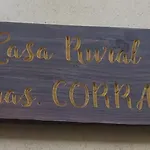 Casa Rural
as. CORRA